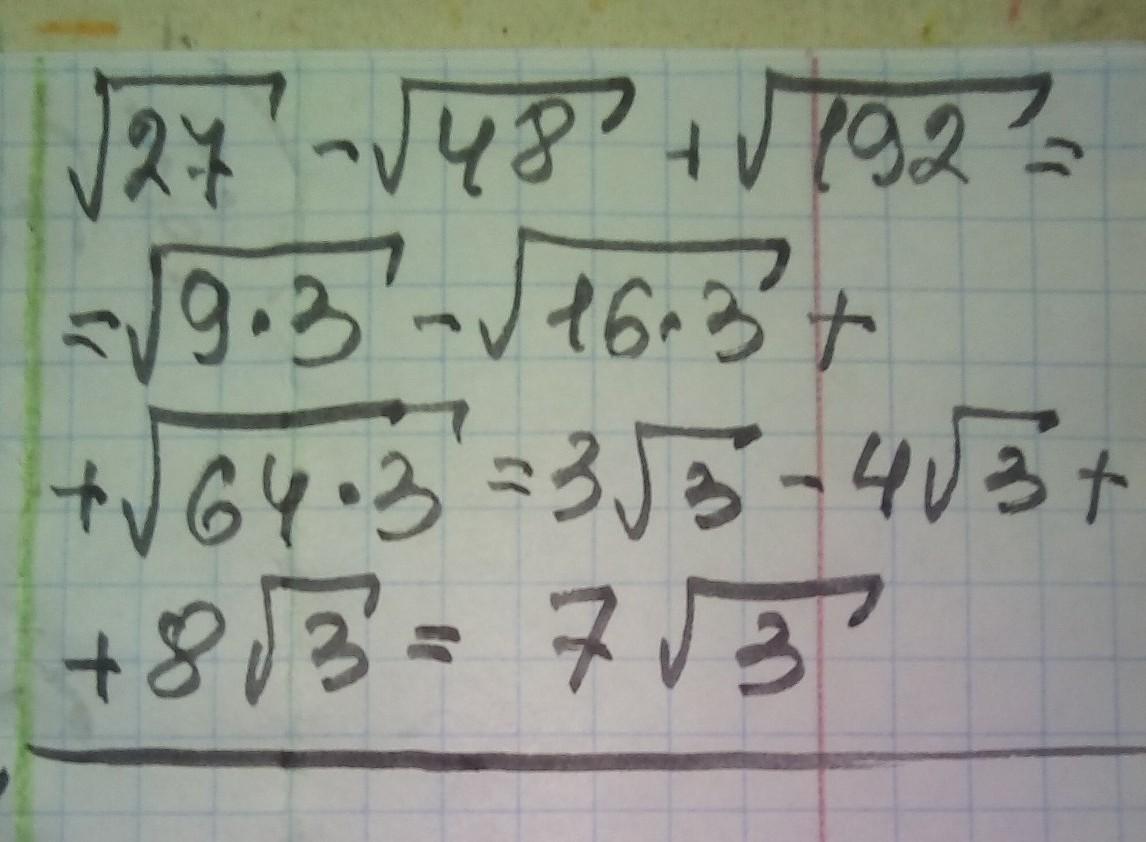 √27 - √48 + √192 =
= √9·3 - √16·3 +
+ √64·3 = 3√3 - 4√3 +
+ 8√3 = 7√3